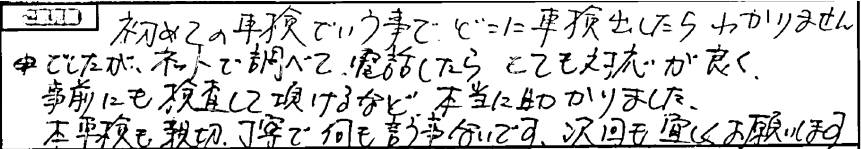 初めての車検でいう事で どこに車検出したらわかりません
でしたが、ネットで調べて、電話したら とても対応が良く、
事前にも検査して頂けるなど 本当に助かりました。
本車検も親切、丁寧で何も言う事ないです。次回も宜しくお願いします